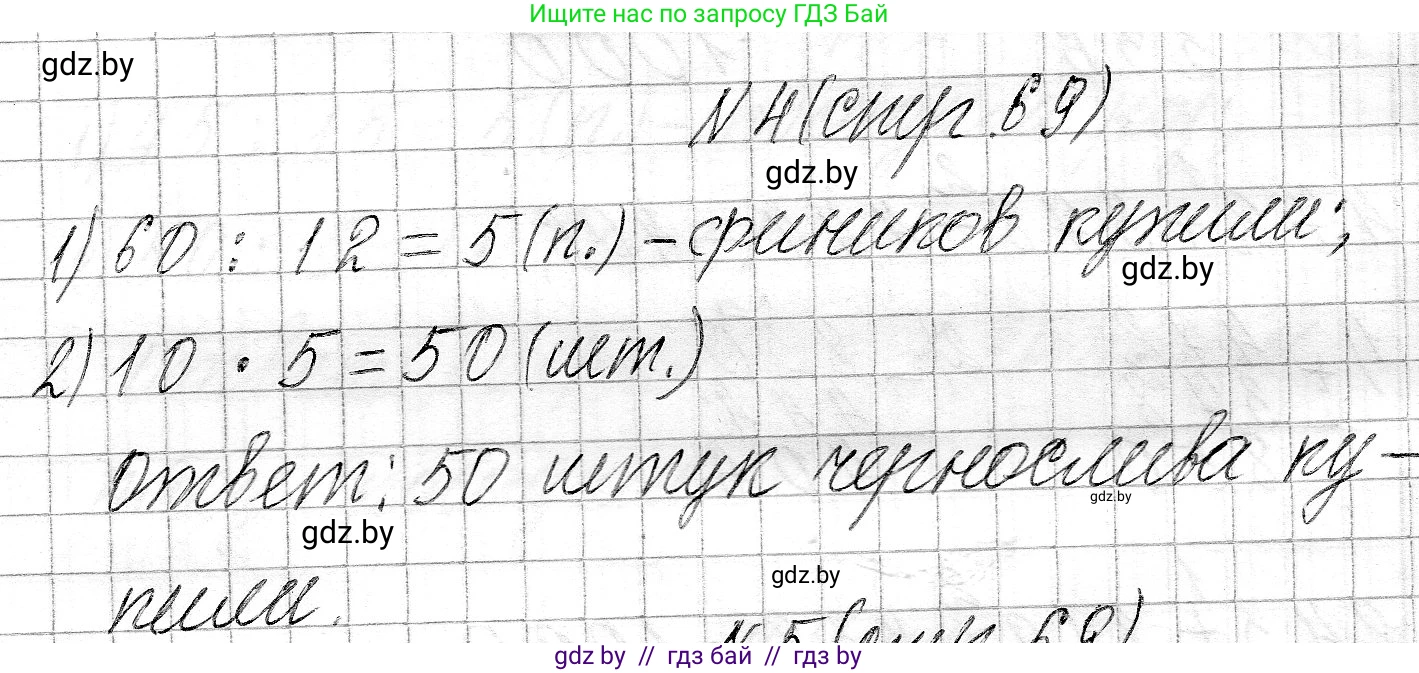 Ищите нас по запросу ГДЗ Бай
gdz.by
N 4 (стр. 69)
gdz.by
1) 60 : 12 = 5 (п.) – фиников купили;
gdz.by
2) 10 · 5 = 50 (шт.)
ответ: 50 штук чернослива ку-
gdz.by
gdz.by
пили.
gdz.by
N 5 (стр. 69)
gdz by // гдз бай // гдз by